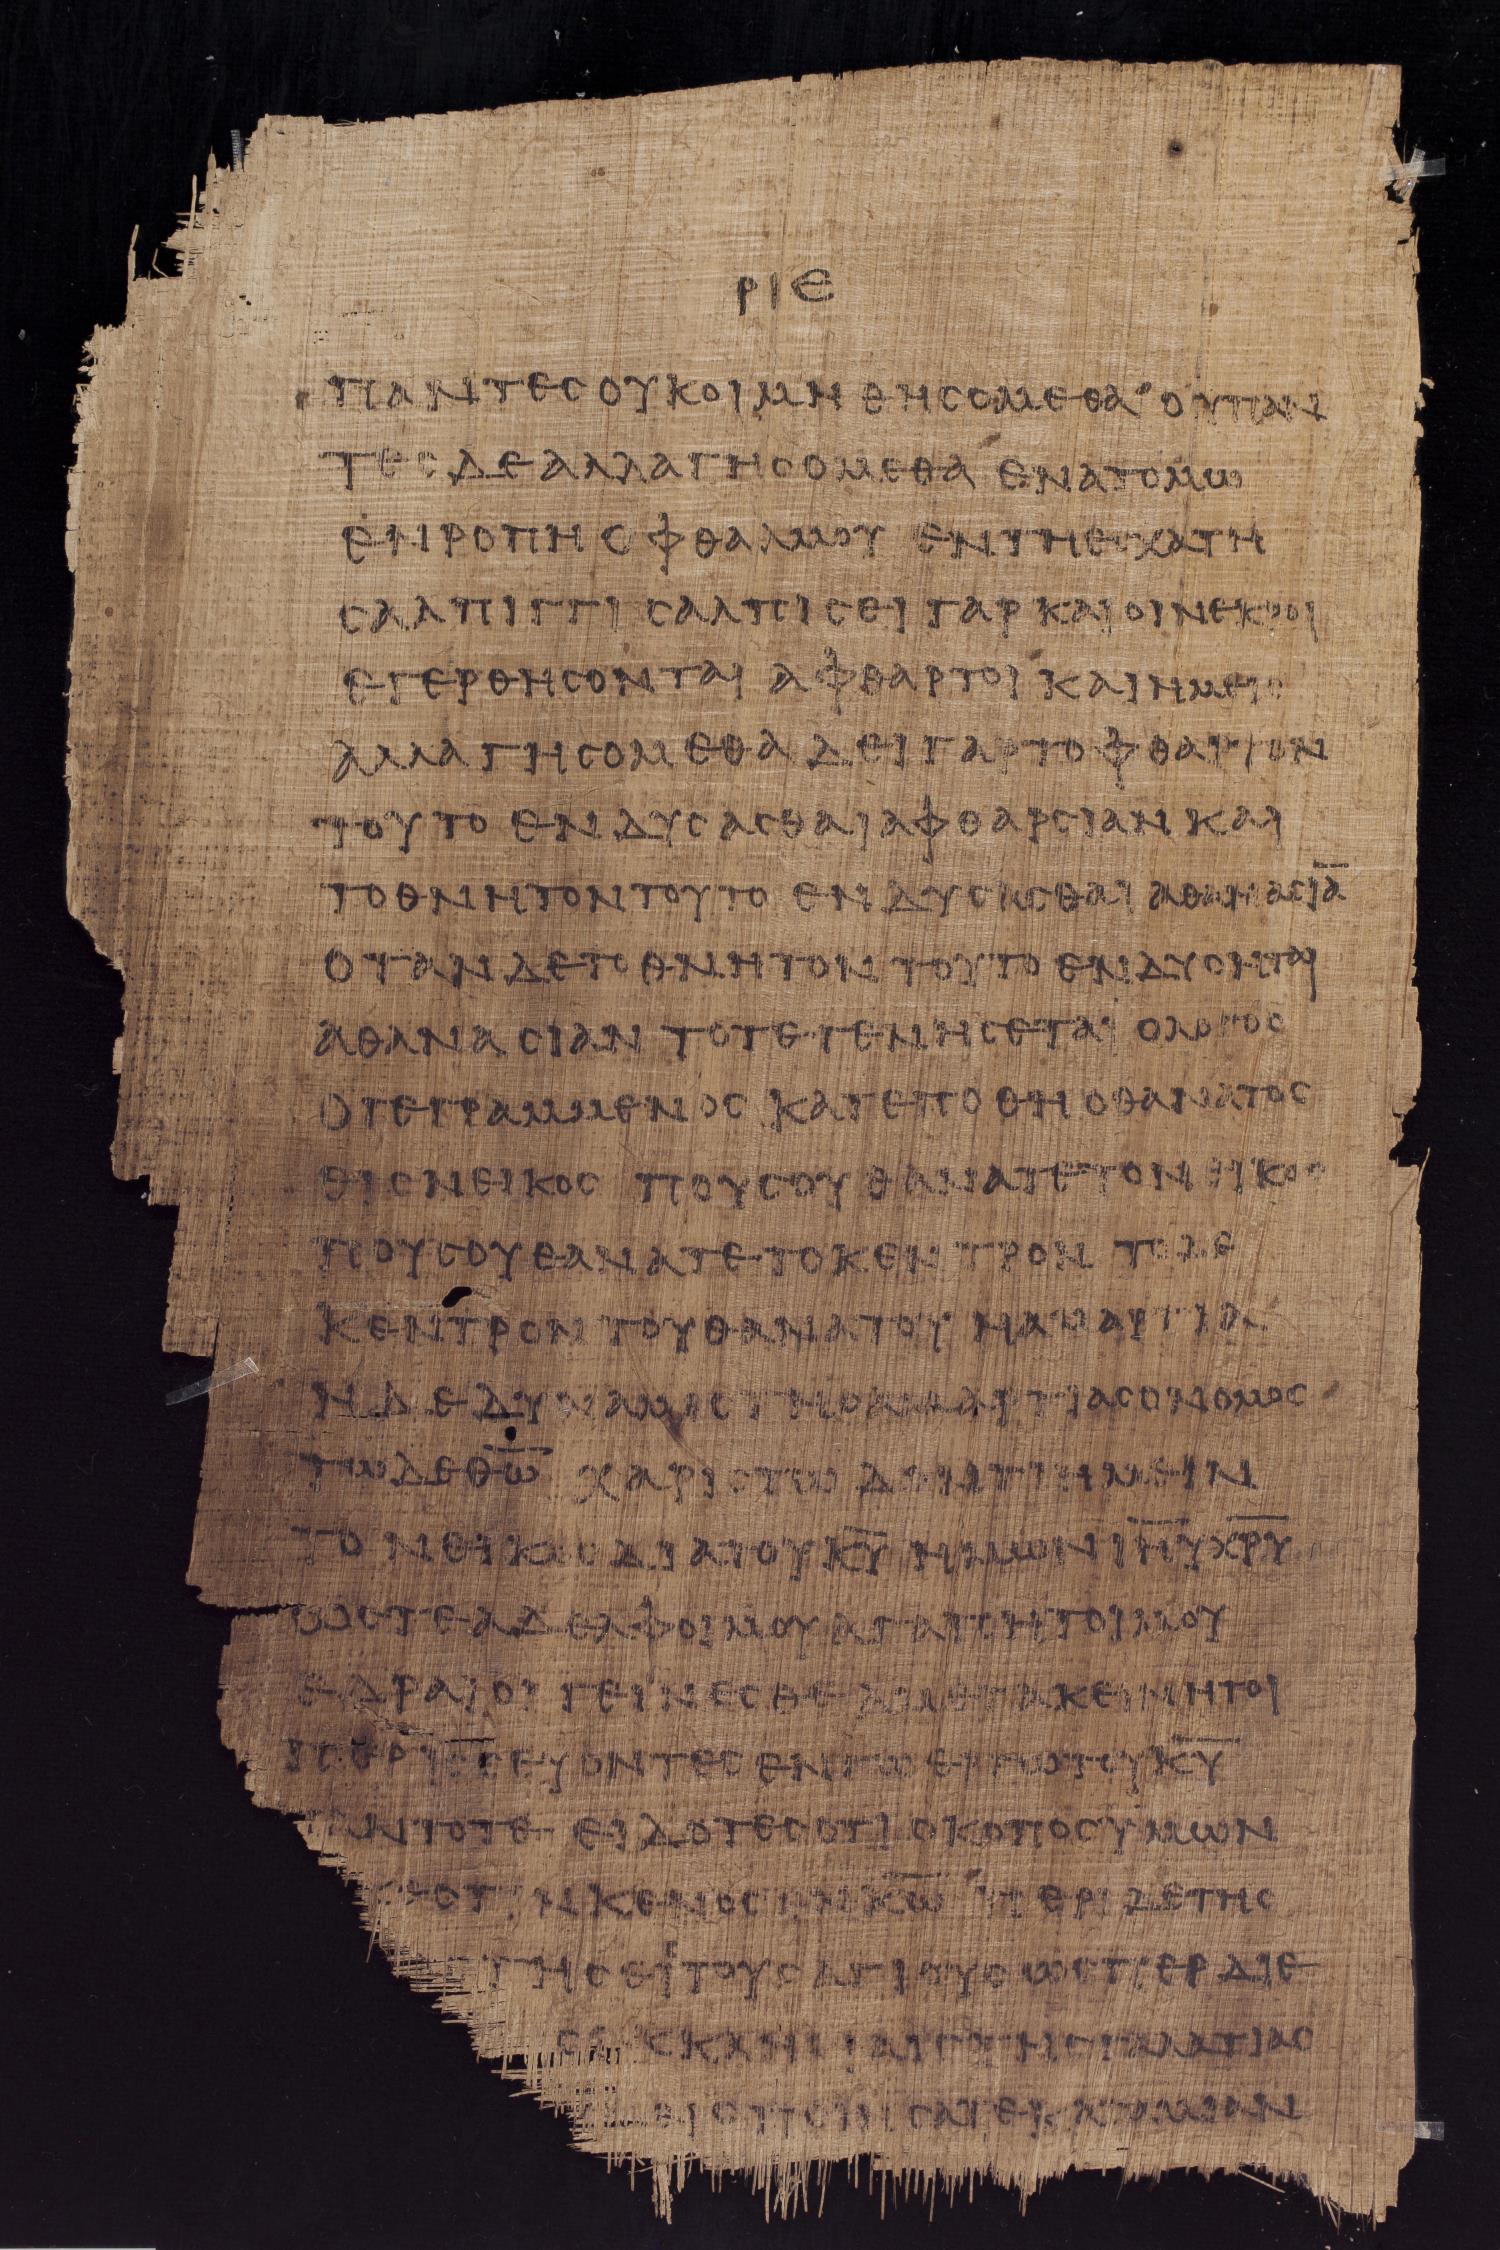 ΡΙΕ
ΠΑΝΤΕΣ ΟΥ ΚΟΙΜΗΘΗΣΟΜΕΘΑ ΟΥ ΠΑΝ
ΤΕΣ ΔΕ ΑΛΛΑΓΗΣΟΜΕΘΑ ΕΝ ΑΤΟΜΩ
ΕΝ ΡΟΠΗ ΟΦΘΑΛΜΟΥ ΕΝ ΤΗ ΕΣΧΑΤΗ
ΣΑΛΠΙΓΓΙ ΣΑΛΠΙΣΕΙ ΓΑΡ ΚΑΙ ΟΙ ΝΕΚΡΟΙ
ΕΓΕΡΘΗΣΟΝΤΑΙ ΑΦΘΑΡΤΟΙ ΚΑΙ ΗΜΕΙΣ
ΑΛΛΑΓΗΣΟΜΕΘΑ ΔΕΙ ΓΑΡ ΤΟ ΦΘΑΡΤΟΝ
ΤΟΥΤΟ ΕΝΔΥΣΑΣΘΑΙ ΑΦΘΑΡΣΙΑΝ ΚΑΙ
ΤΟ ΘΝΗΤΟΝ ΤΟΥΤΟ ΕΝΔΥΣΑΣΘΑΙ ΑΘΑΝΑΣΙΑ̅
ΟΤΑΝ ΔΕ ΤΟ ΘΝΗΤΟΝ ΤΟΥΤΟ ΕΝΔΥΣΗΤΑΙ
ΑΘΑΝΑΣΙΑΝ ΤΟΤΕ ΓΕΝΗΣΕΤΑΙ Ο ΛΟΓΟΣ
Ο ΓΕΓΡΑΜΜΕΝΟΣ ΚΑΤΕΠΟΘΗ Ο ΘΑΝΑΤΟΣ
ΕΙΣ ΝΕΙΚΟΣ ΠΟΥ ΣΟΥ ΘΑΝΑΤΕ ΤΟ ΝΕΙΚΟΣ
ΠΟΥ ΣΟΥ ΘΑΝΑΤΕ ΤΟ ΚΕΝΤΡΟΝ ΤΟ ΔΕ
ΚΕΝΤΡΟΝ ΤΟΥ ΘΑΝΑΤΟΥ Η ΑΜΑΡΤΙΑ
Η ΔΕ ΔΥΝΑΜΙΣ ΤΗΣ ΑΜΑΡΤΙΑΣ Ο ΝΟΜΟΣ
ΤΩ ΔΕ Θ̅Ω̅ ΧΑΡΙΣ ΤΩ ΔΟΝΤΙ ΗΜΕΙΝ
ΤΟ ΝΕΙΚΟΣ ΔΙΑ ΤΟΥ Κ̅Υ̅ ΗΜΩΝ Ι̅Η̅Υ̅ Χ̅Ρ̅Υ̅
ΩΣΤΕ ΑΔΕΛΦΟΙ ΜΟΥ ΑΓΑΠΗΤΟΙ ΜΟΥ
ΕΔΡΑΙΟΙ ΓΕΙΝΕΣΘΕ ΑΜΕΤΑΚΕΙΝΗΤΟΙ
ΠΕΡΙΣΣΕΥΟΝΤΕΣ ΕΝ ΤΩ ΕΡΓΩ ΤΟΥ Κ̅Υ̅
ΠΑΝΤΟΤΕ ΕΙΔΟΤΕΣ ΟΤΙ Ο ΚΟΠΟΣ ΥΜΩΝ
ΟΥΚ ΕΣΤΙΝ ΚΕΝΟΣ ΕΝ Κ̅Ω̅ ΠΕΡΙ ΔΕ ΤΗΣ
ΤΗΣ ΕΙΣ ΤΟΥΣ ΑΓΙΟΥΣ ΩΣΠΕΡ ΔΙΕ
ΕΚΚΛΗΣΙΑΙΣ ΤΗΣ ΓΑΛΑΤΙΑΣ
ΠΟΙΗΣΑΤΕ ΚΑΤΑ ΜΙΑΝ